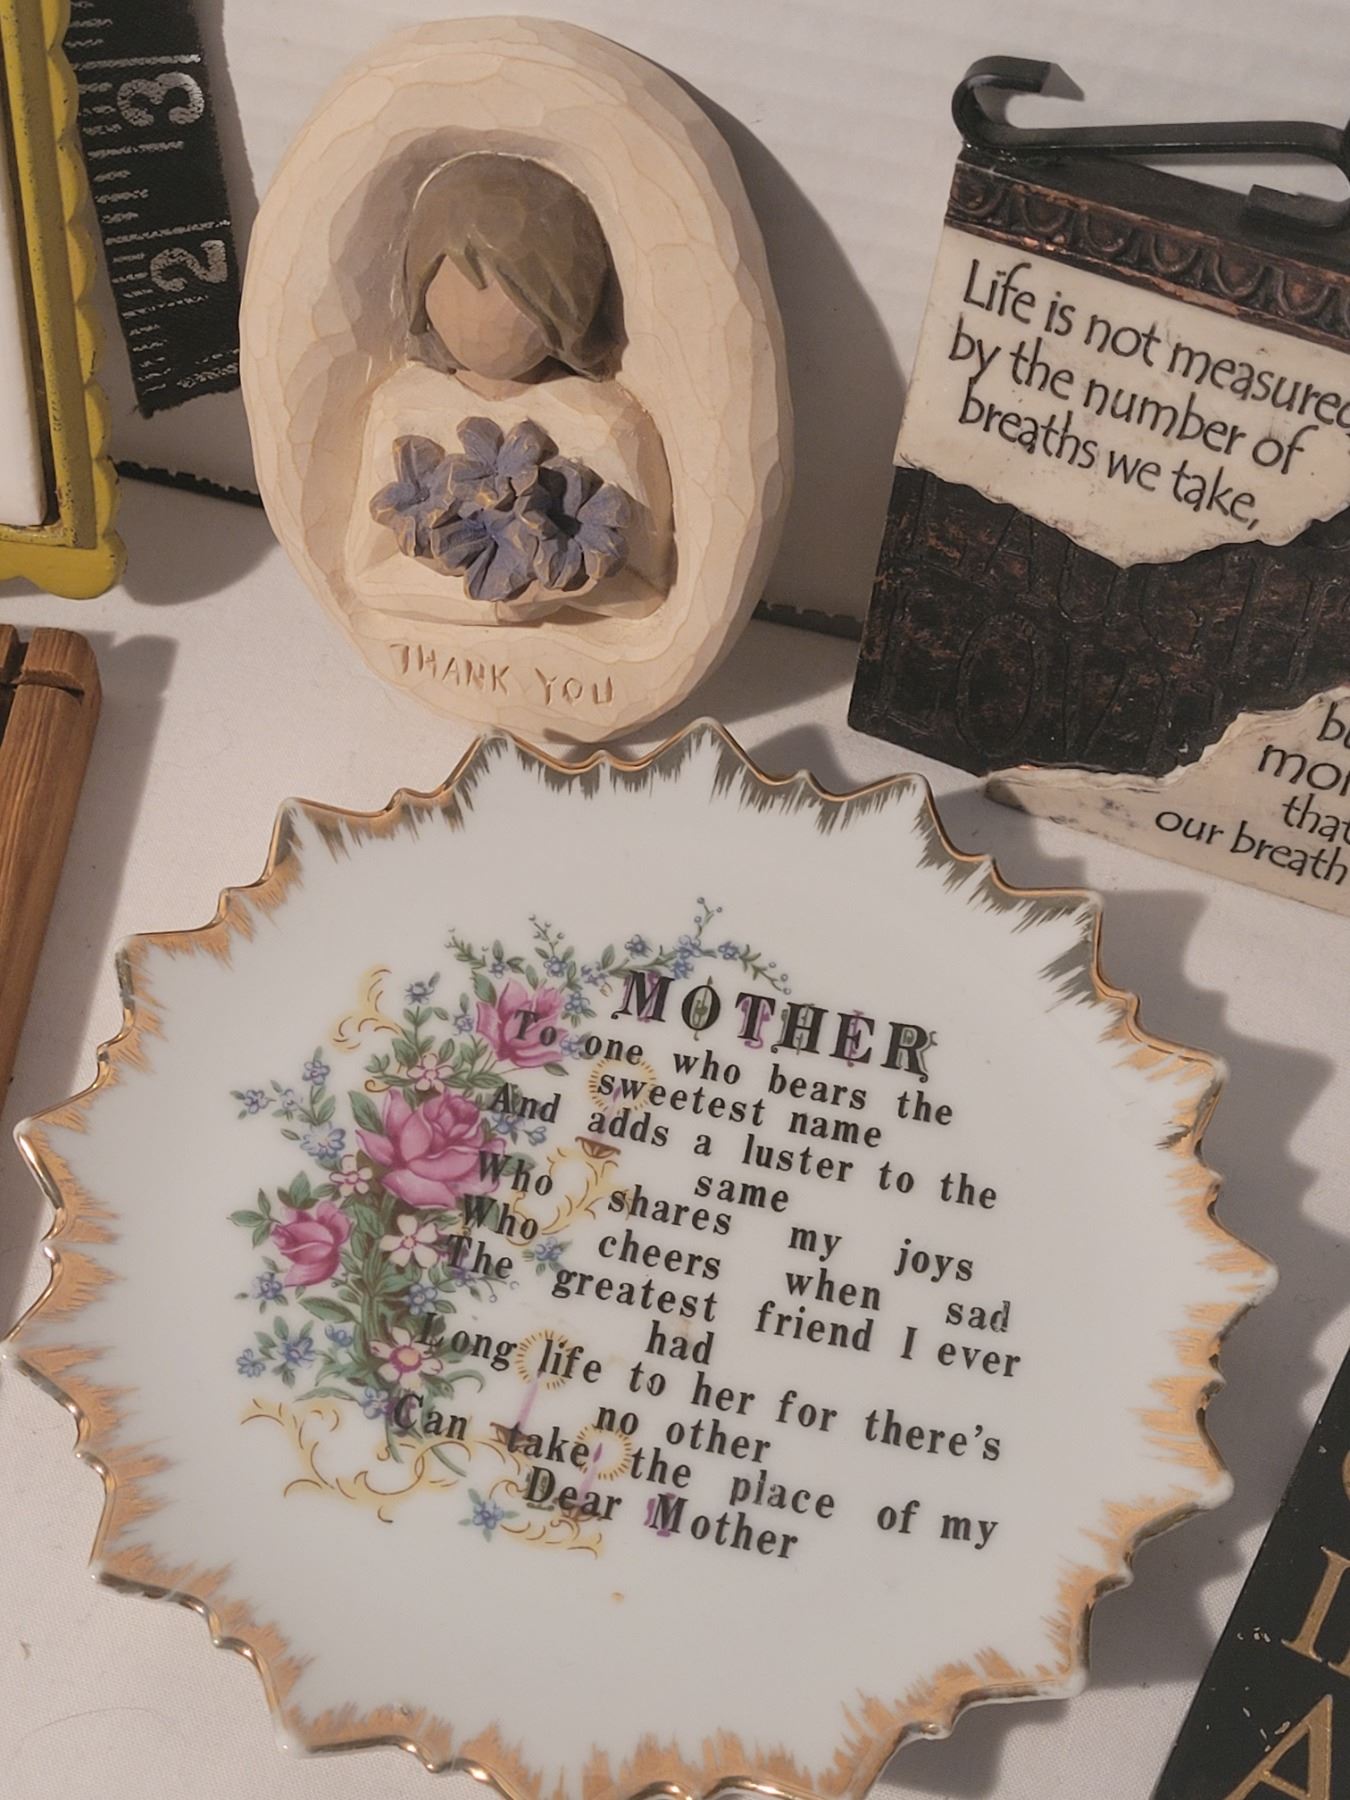 3
2
THANK YOU
Life is not measured
by the number of
breaths we take,
LAUGH
LOVE
that
our breath
MOTHER
To one who bears the
sweetest name
And adds a luster to the
same
Who shares my joys
Who cheers when sad
The greatest friend I ever
had
Long life to her for there's
no other
Can take the place of my
Dear Mother
I
A